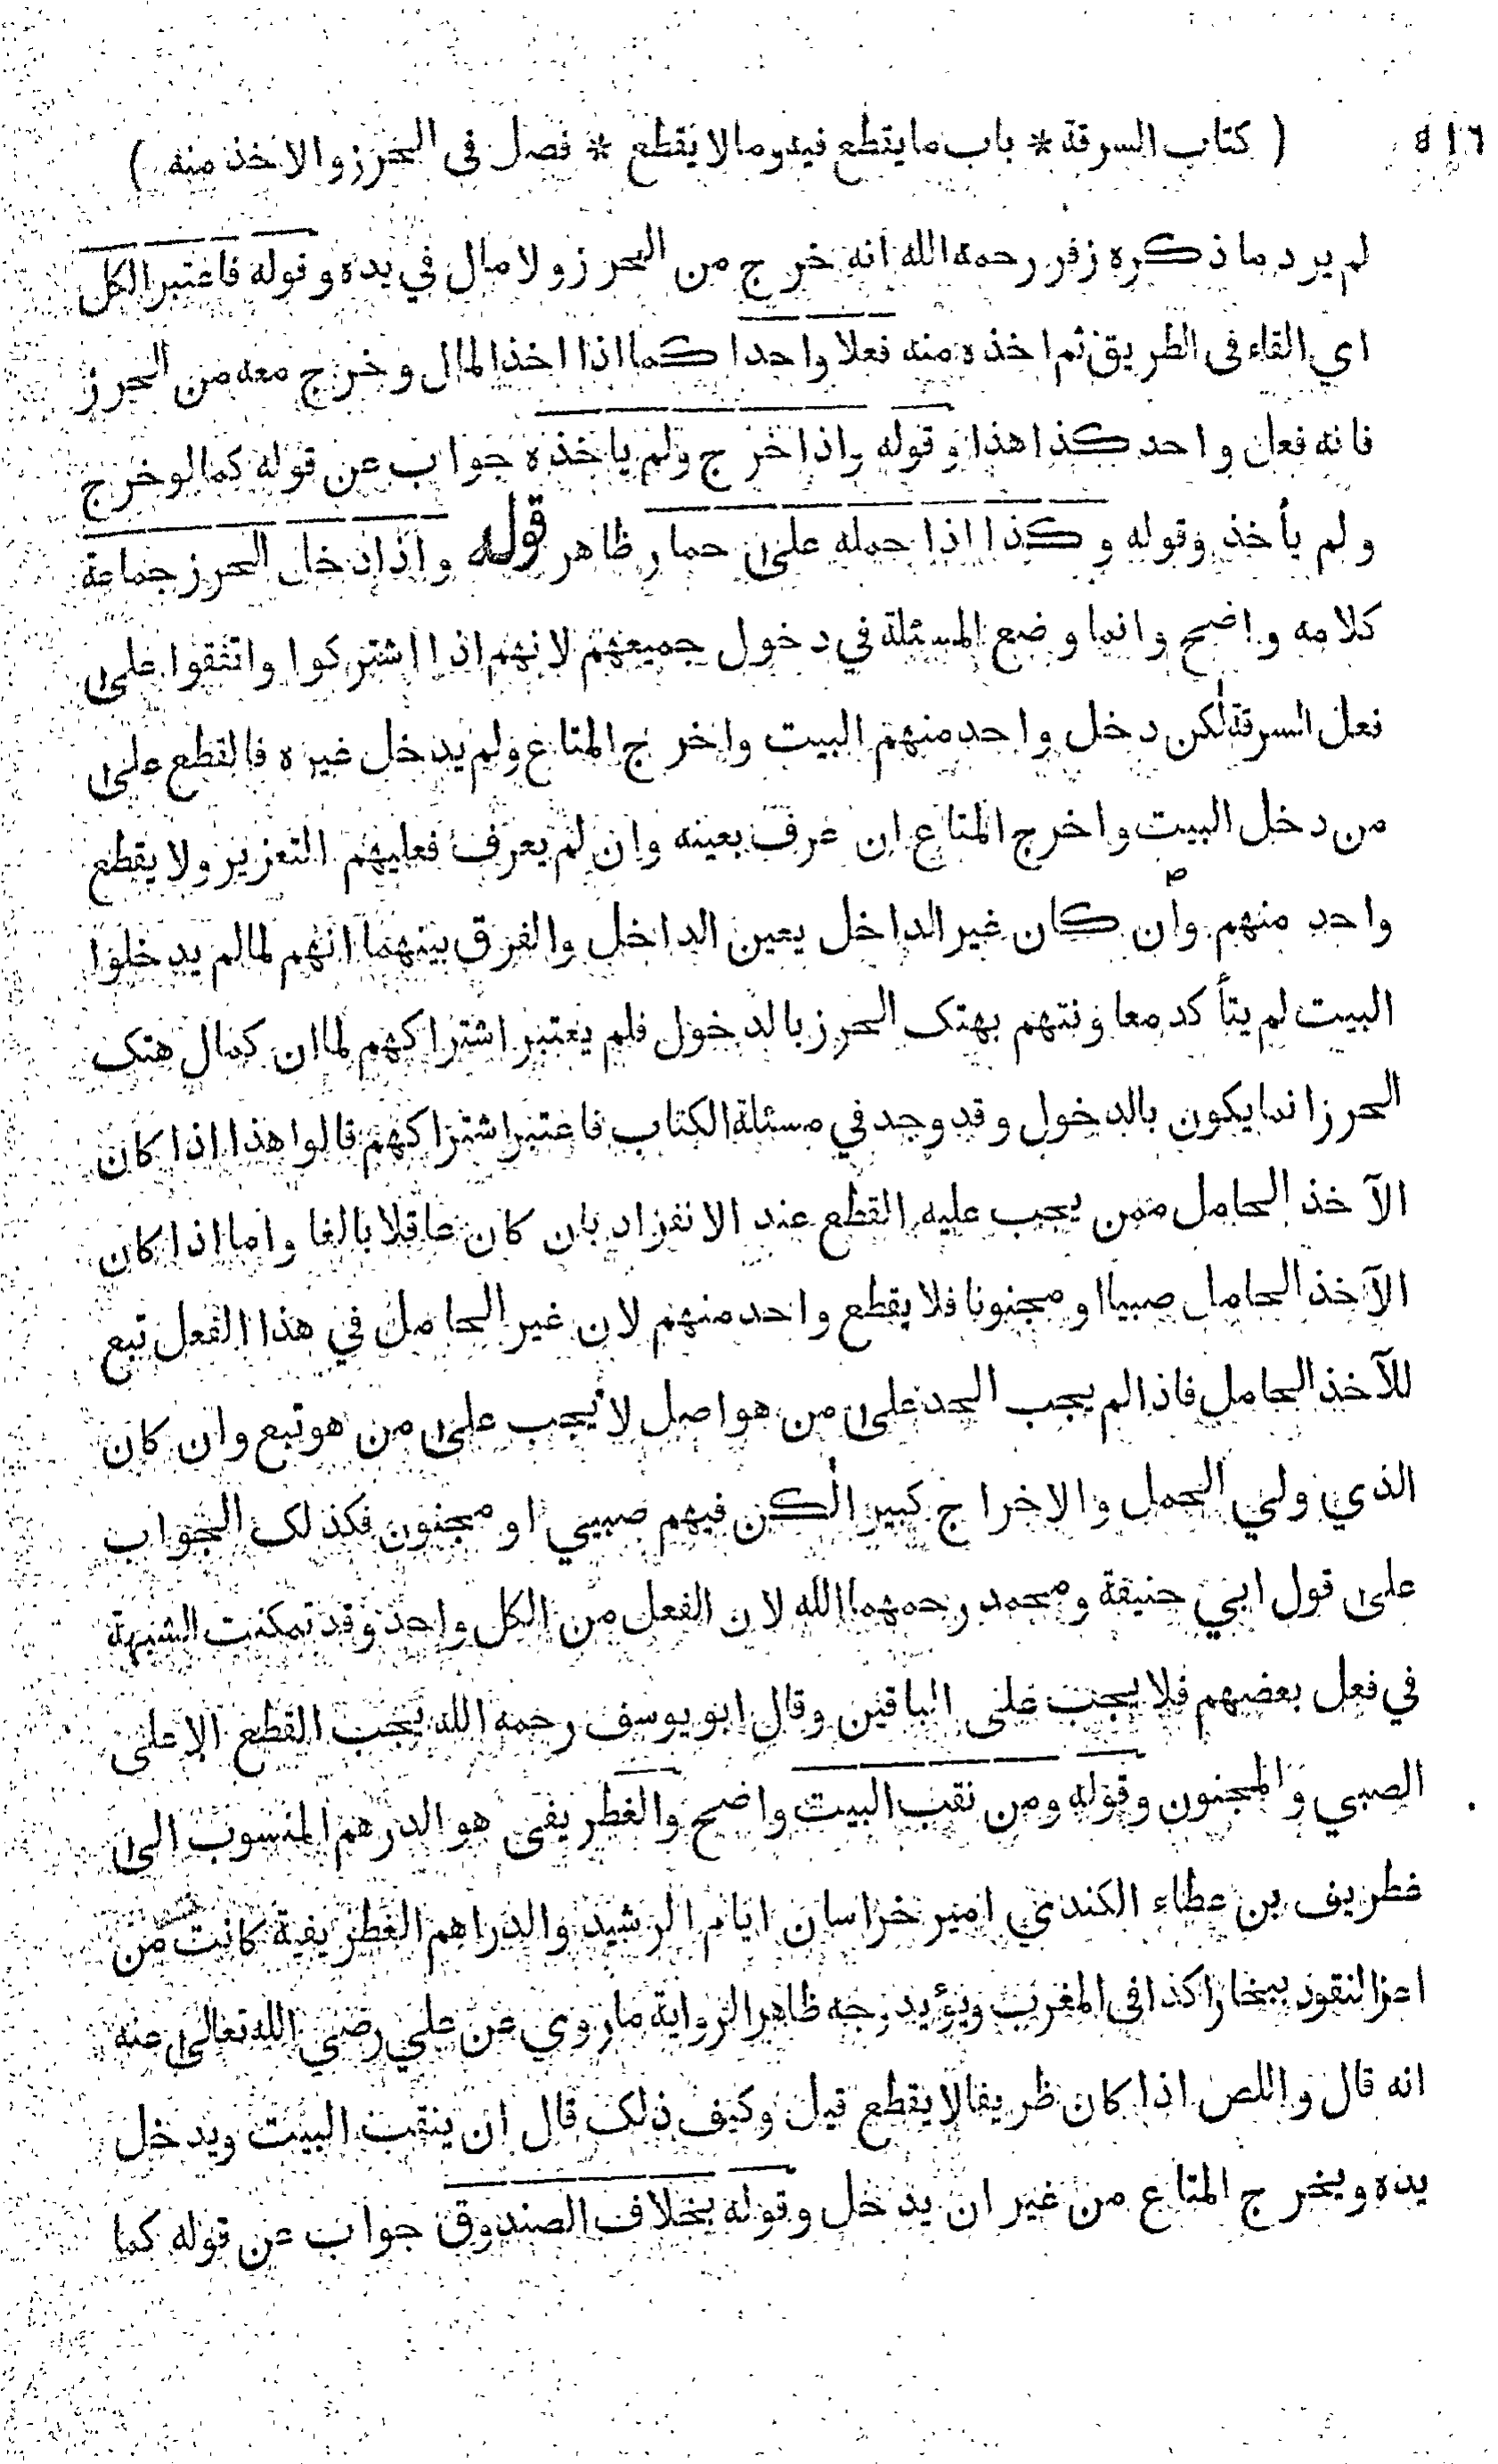 ( كتاب السرقة * باب ما يقطع فيه وما لا يقطع * فصل في الحرز والاخذ منه )
لم يرد ما ذكره زفر رحمه الله انه خرج من الحرز ولا مال في يده وقوله فاعتبر الكل
اي القاء في الطريق ثم اخذه منه فعلا واحدا كما اذا اخذ المال وخرج معه من الحرز
فانه فعل واحد كذا هذا وقوله واذا خرج ولم ياخذه جواب عن قوله كما لو خرج
ولم يأخذ وقوله وكذا اذا حمله على حمار ظاهر قوله واذا دخل الحرز جماعة
كلامه واضح وانما وضع المسئلة في دخول جميعهم لانهم اذا اشتركوا واتفقوا على
فعل السرقة لكن دخل واحد منهم البيت واخرج المتاع ولم يدخل غيره فالقطع على
من دخل البيت واخرج المتاع ان عرف بعينه وان لم يعرف فعليهم التعزير ولا يقطع
واحد منهم وان كان غير الداخل يعين الداخل والفرق بينهما انهم لما لم يدخلوا
البيت لم يتأكد معاونتهم بهتك الحرز بالدخول فلم يعتبر اشتراكهم لما ان كمال هتك
الحرز انما يكون بالدخول وقد وجد في مسئلة الكتاب فاعتبر اشتراكهم قالوا هذا اذا كان
الآخذ الحامل ممن يجب عليه القطع عند الانفراد بان كان عاقلا بالغا واما اذا كان
الآخذ الحامل صبيا او مجنونا فلا يقطع واحد منهم لان غير الحامل في هذا الفعل تبع
للآخذ الحامل فاذا لم يجب الحد على من هو اصل لا يجب على من هو تبع وان كان
الذي ولي الحمل والاخراج كبيرا لكن فيهم صبي او مجنون فكذلك الجواب
على قول ابي حنيفة ومحمد رحمهما الله لان الفعل من الكل واحد وقد تمكنت الشبهة
في فعل بعضهم فلا يجب على الباقين وقال ابو يوسف رحمه الله يجب القطع الا على
الصبي والمجنون وقوله ومن نقب البيت واضح والغطريفي هو الدرهم المنسوب الى
غطريف بن عطاء الكندي امير خراسان ايام الرشيد والدراهم الغطريفية كانت من
اعز النقود ببخارا كذا في المغرب ويؤيد وجه ظاهر الرواية ما روي عن علي رضي الله تعالى عنه
انه قال واللص اذا كان ظريفا لا يقطع قيل وكيف ذلك قال ان ينقب البيت ويدخل
يده ويخرج المتاع من غير ان يدخل وقوله بخلاف الصندوق جواب عن قوله كما